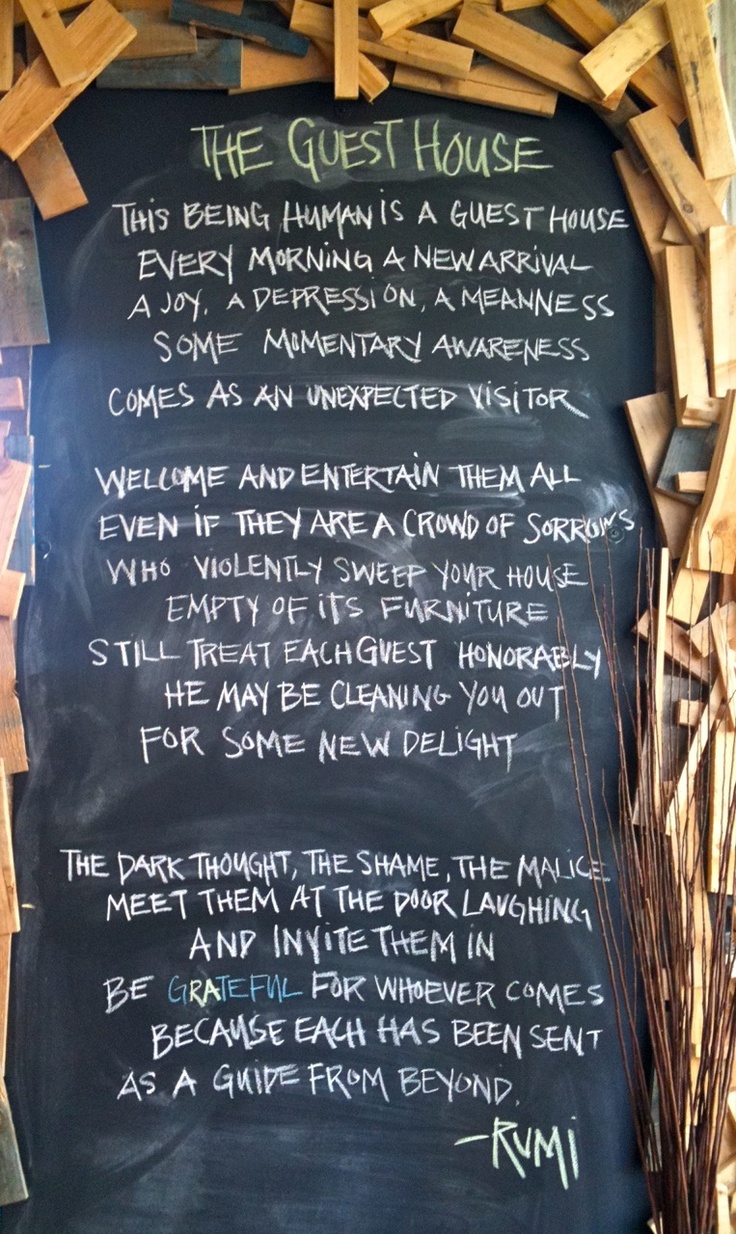 THE GUEST HOUSE
THIS BEING HUMAN IS A GUEST HOUSE
EVERY MORNING A NEW ARRIVAL
A JOY, A DEPRESSION, A MEANNESS
SOME MOMENTARY AWARENESS
COMES AS AN UNEXPECTED VISITOR
WELCOME AND ENTERTAIN THEM ALL
EVEN IF THEY ARE A CROWD OF SORROWS
WHO VIOLENTLY SWEEP YOUR HOUSE
EMPTY OF ITS FURNITURE
STILL TREAT EACH GUEST HONORABLY
HE MAY BE CLEANING YOU OUT
FOR SOME NEW DELIGHT
THE DARK THOUGHT, THE SHAME, THE MALICE
MEET THEM AT THE DOOR LAUGHING
AND INVITE THEM IN
BE GRATEFUL FOR WHOEVER COMES
BECAUSE EACH HAS BEEN SENT
AS A GUIDE FROM BEYOND.
-RUMI